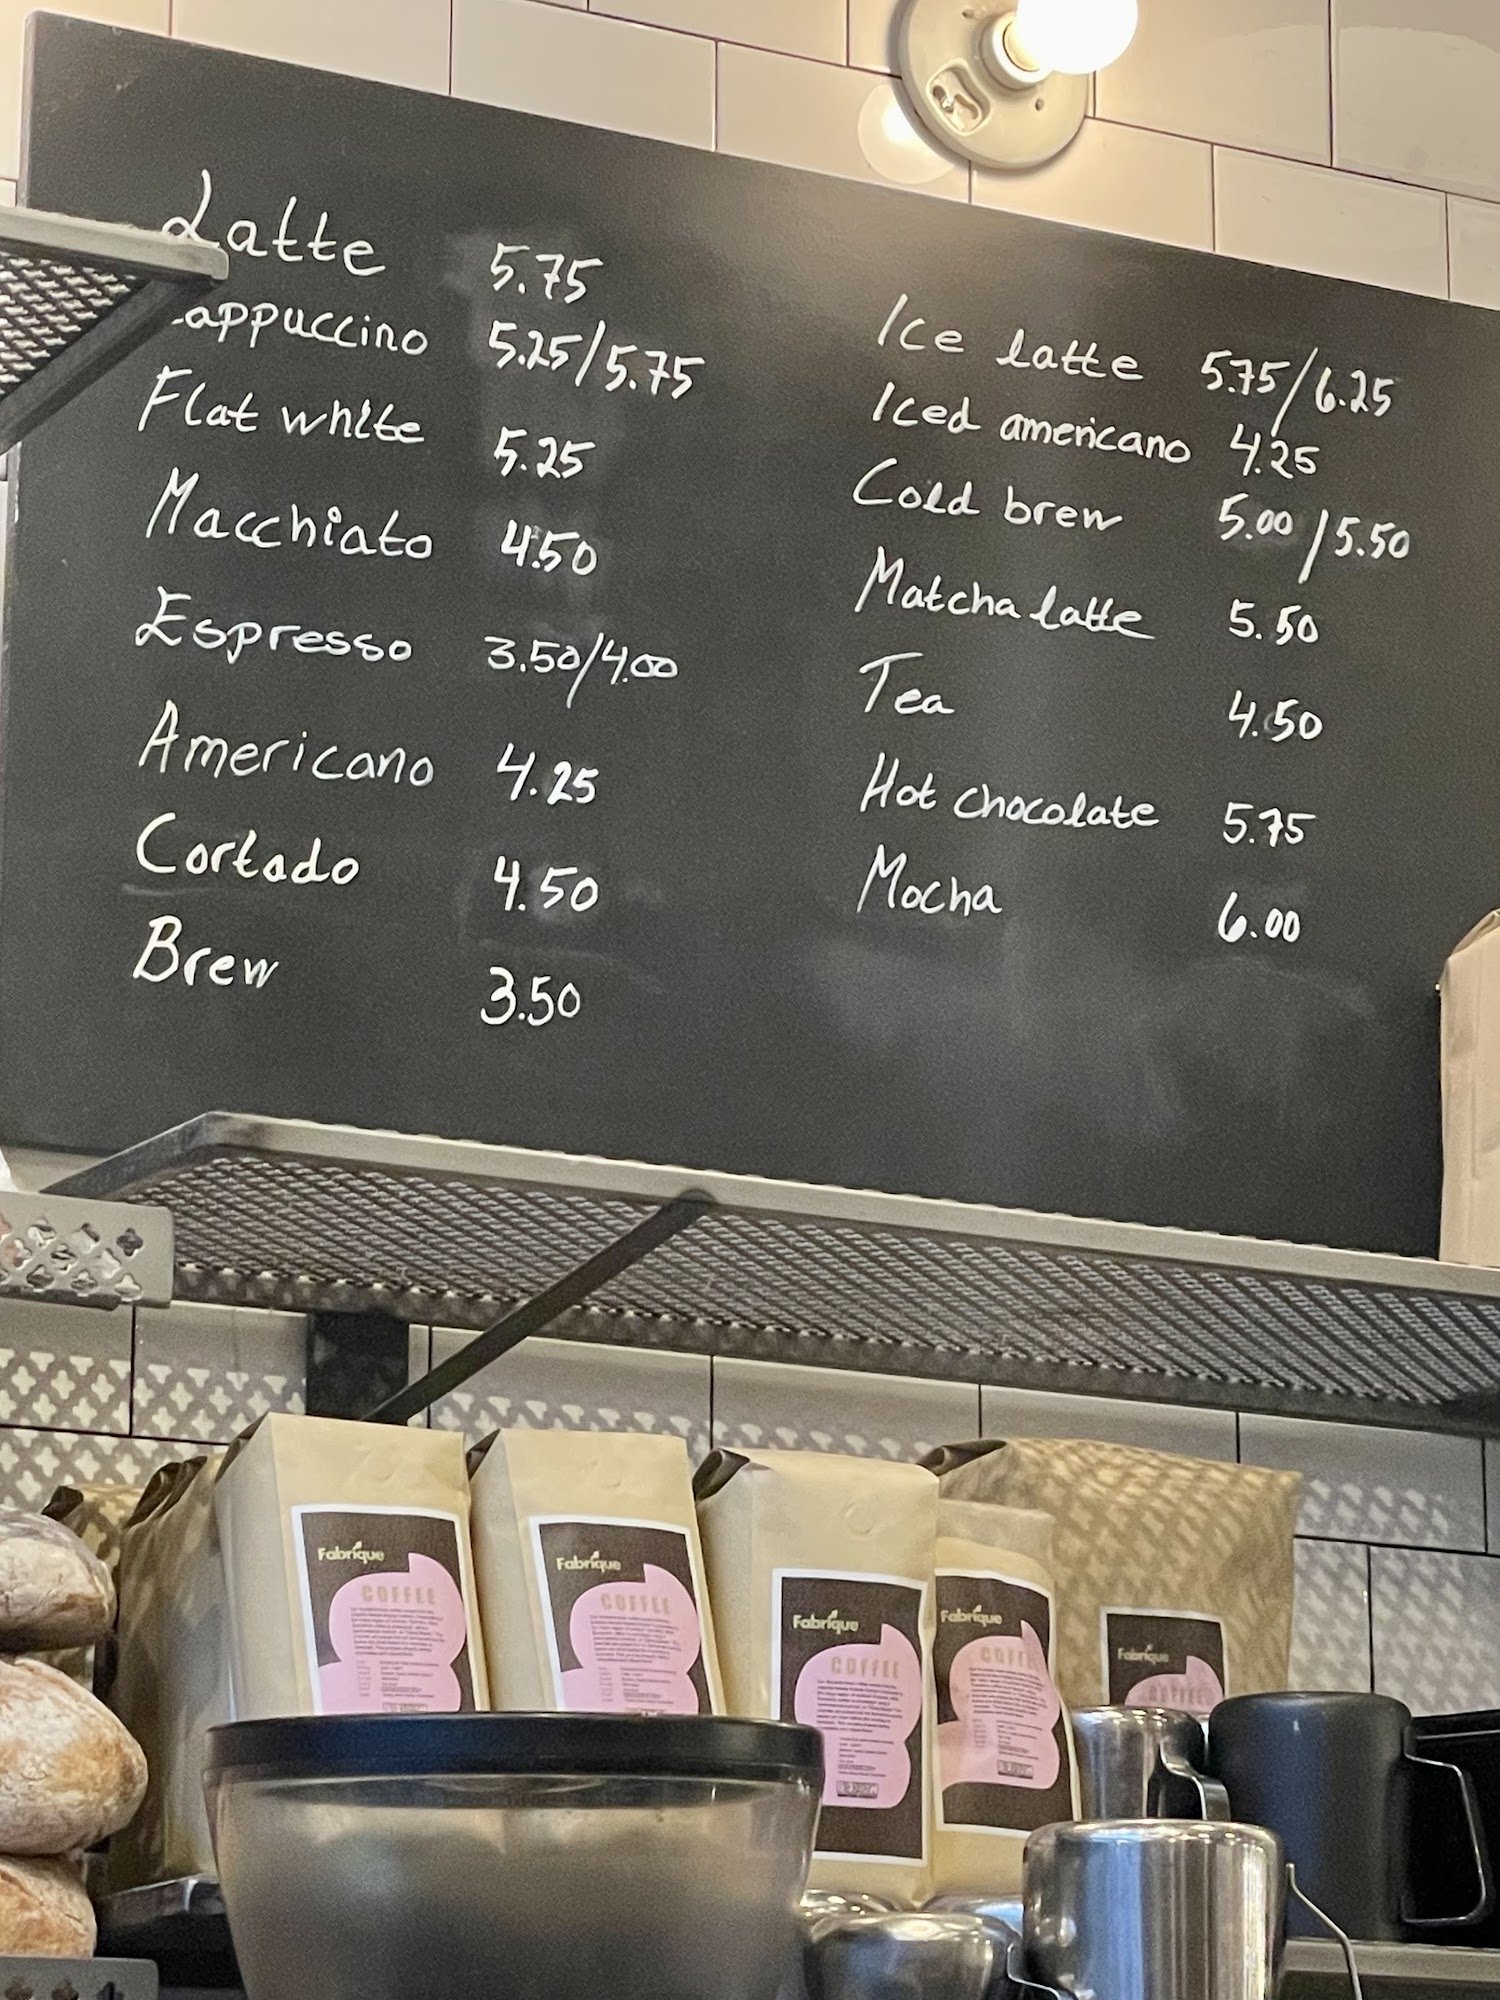 Latte 5.75
Cappuccino 5.25/5.75
Flat white 5.25
Macchiato 4.50
Espresso 3.50/4.00
Americano 4.25
Cortado 4.50
Brew 3.50
Ice latte 5.75/6.25
Iced americano 4.25
Cold brew 5.00/5.50
Matcha latte 5.50
Tea 4.50
Hot chocolate 5.75
Mocha 6.00
Fabrique
COFFEE
Fabrique
COFFEE
Fabrique
COFFEE
Fabrique
COFFEE
Fabrique
COFFEE